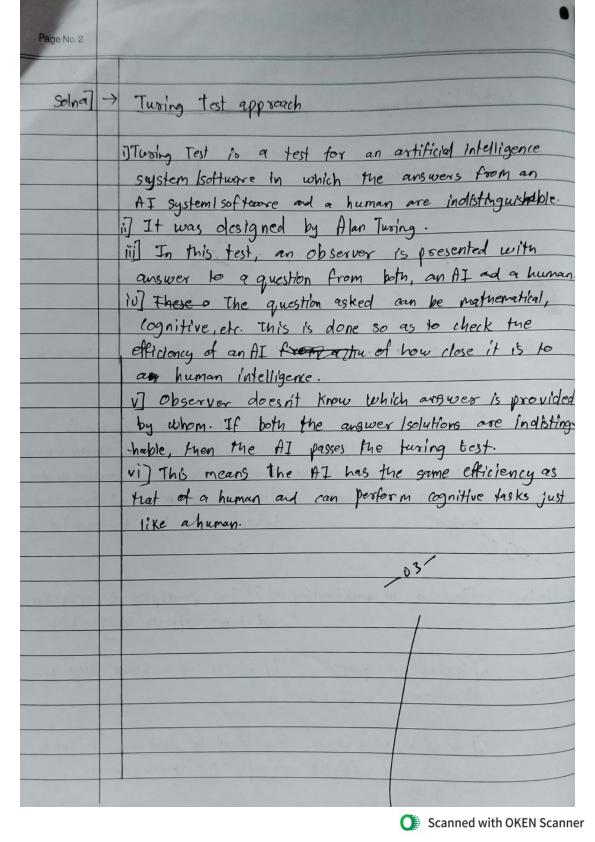 Page No. 2
Solna] → Turing test approach
i] Turing Test is a test for an artificial intelligence
system/software in which the answers from an
AI system/software and a human are indistinguishable.
ii] It was designed by Alan Turing.
iii] In this test, an observer is presented with
answer to a question from both, an AI ad a human.
iv] These The question asked can be mathematical,
cognitive, etc. This is done so as to check the
efficiency of an AI of how close it is to
a human intelligence.
v] Observer doesn't know which answer is provided
by whom. If both the answer/solutions are indisting-
-hable, then the AI passes the turing test.
vi] This means the AI has the same efficiency as
that of a human and can perform cognitive tasks just
like a human.
03
Scanned with OKEN Scanner